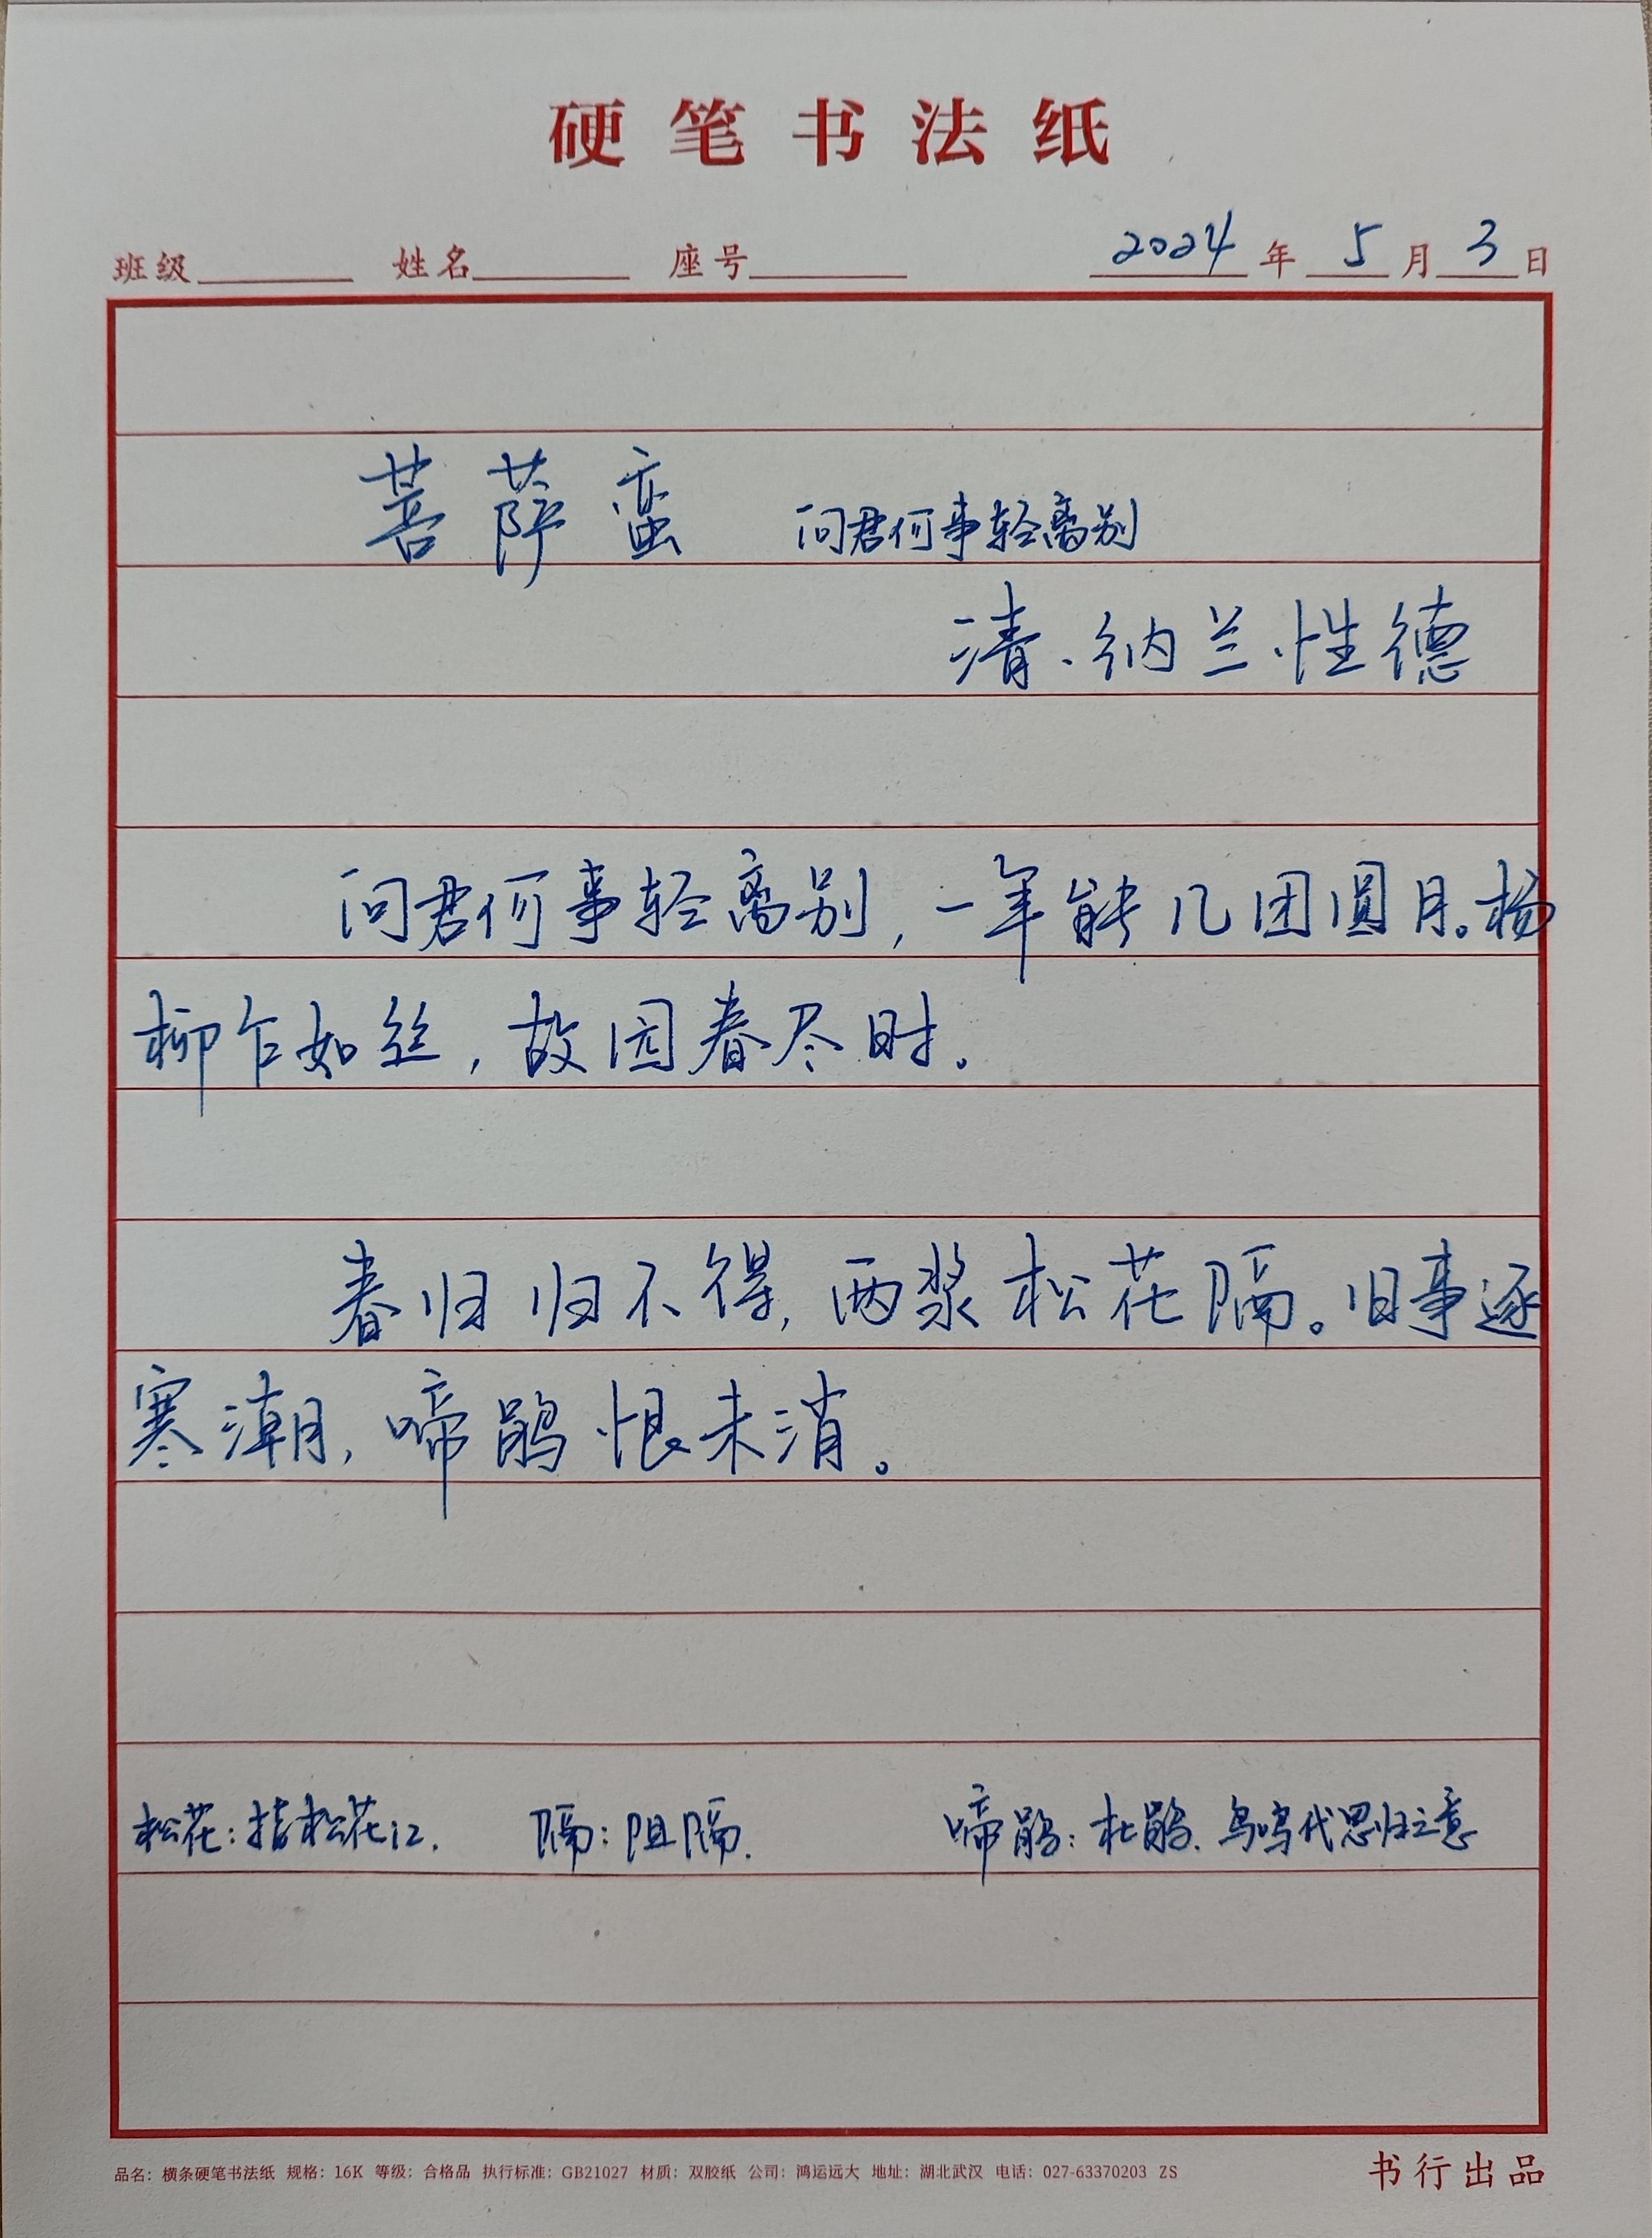 硬笔书法纸
班级 姓名 座号 2024年5月3日
菩萨蛮 问君何事轻离别
清·纳兰性德
问君何事轻离别，一年能几团圆月。杨
柳乍如丝，故园春尽时。
春归归不得，两桨松花隔。旧事逐
寒潮，啼鹃恨未消。
松花：指松花江． 隔：阻隔． 啼鹃：杜鹃．鸟鸣代思归之意
品名：横条硬笔书法纸 规格：16K 等级：合格品 执行标准：GB21027 材质：双胶纸 公司：鸿运远大 地址：湖北武汉 电话：027-63370203 ZS
书行出品